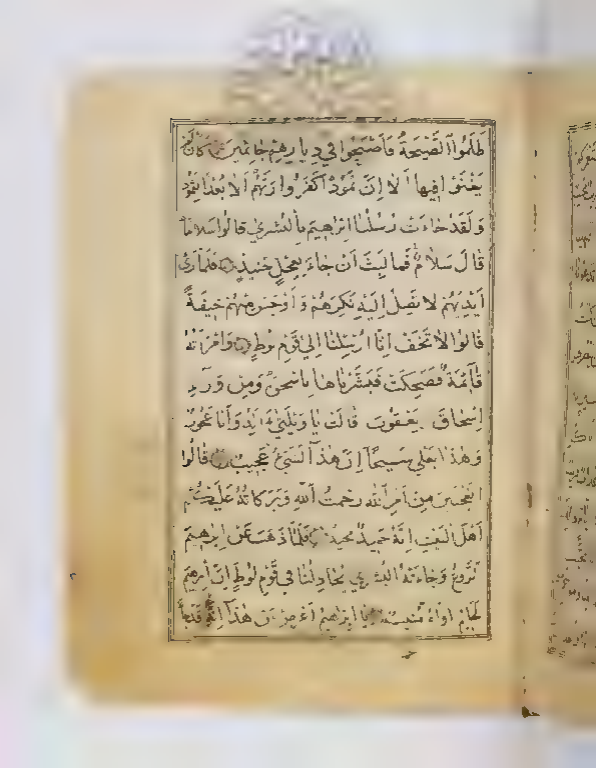 ظَلَمُوا الصَّيْحَةُ فَاَصْبَحُوا فِي دِيَارِهِمْ جَاثِمِينَ كَانْ لَمْ
يَغْنَوْا فِيهَا اَلَا اِنَّ ثَمُودَ اكَفَرُوا رَبَّهُمْ اَلَا بُعْدًا لِثَمُودَ
وَلَقَدْ جَاءَتْ رُسُلُنَا اِبْرٰهِيمَ بِالْبُشْرٰي قَالُوا سَلَامًا
قَالَ سَلَامٌ فَمَا لَبِثَ اَنْ جَاءَ بِعِجْلٍ حَنِيذٍ فَلَمَّا رَاٰ
اَيْدِيَهُمْ لَا تَصِلُ اِلَيْهِ نَكِرَهُمْ وَاَوْجَسَ مِنْهُمْ خِيفَةً
قَالُوا لَا تَخَفْ اِنَّا اُرْسِلْنَا اِلٰي قَوْمِ لُوطٍ وَامْرَاَتُهُ
قَآئِمَةٌ فَضَحِكَتْ فَبَشَّرْنَاهَا بِاِسْحٰقَ وَمِنْ وَرَآءِ
اِسْحَاقَ يَعْقُوبَ قَالَتْ يَا وَيْلَتٰي ءَاَلِدُ وَاَنَا عَجُوزٌ
وَهٰذَا بَعْلِي شَيْخًا اِنَّ هٰذَا لَشَيْءٌ عَجِيبٌ قَالُوا
اَتَعْجَبِينَ مِنْ اَمْرِ اللهِ رَحْمَتُ اللهِ وَبَرَكَاتُهُ عَلَيْكُمْ
اَهْلَ الْبَيْتِ اِنَّهُ حَمِيدٌ مَجِيدٌ فَلَمَّا ذَهَبَ عَنْ اِبْرٰهِيمَ
الرَّوْعُ وَجَاءَتْهُ الْبُشْرٰي يُجَادِلُنَا فِي قَوْمِ لُوطٍ اِنَّ اِبْرٰهِيمَ
لَحَلِيمٌ اَوَّاهٌ مُنِيبٌ يَا اِبْرٰهِيمُ اَعْرِضْ عَنْ هٰذَا اِنَّهُ قَدْ جَآءَ